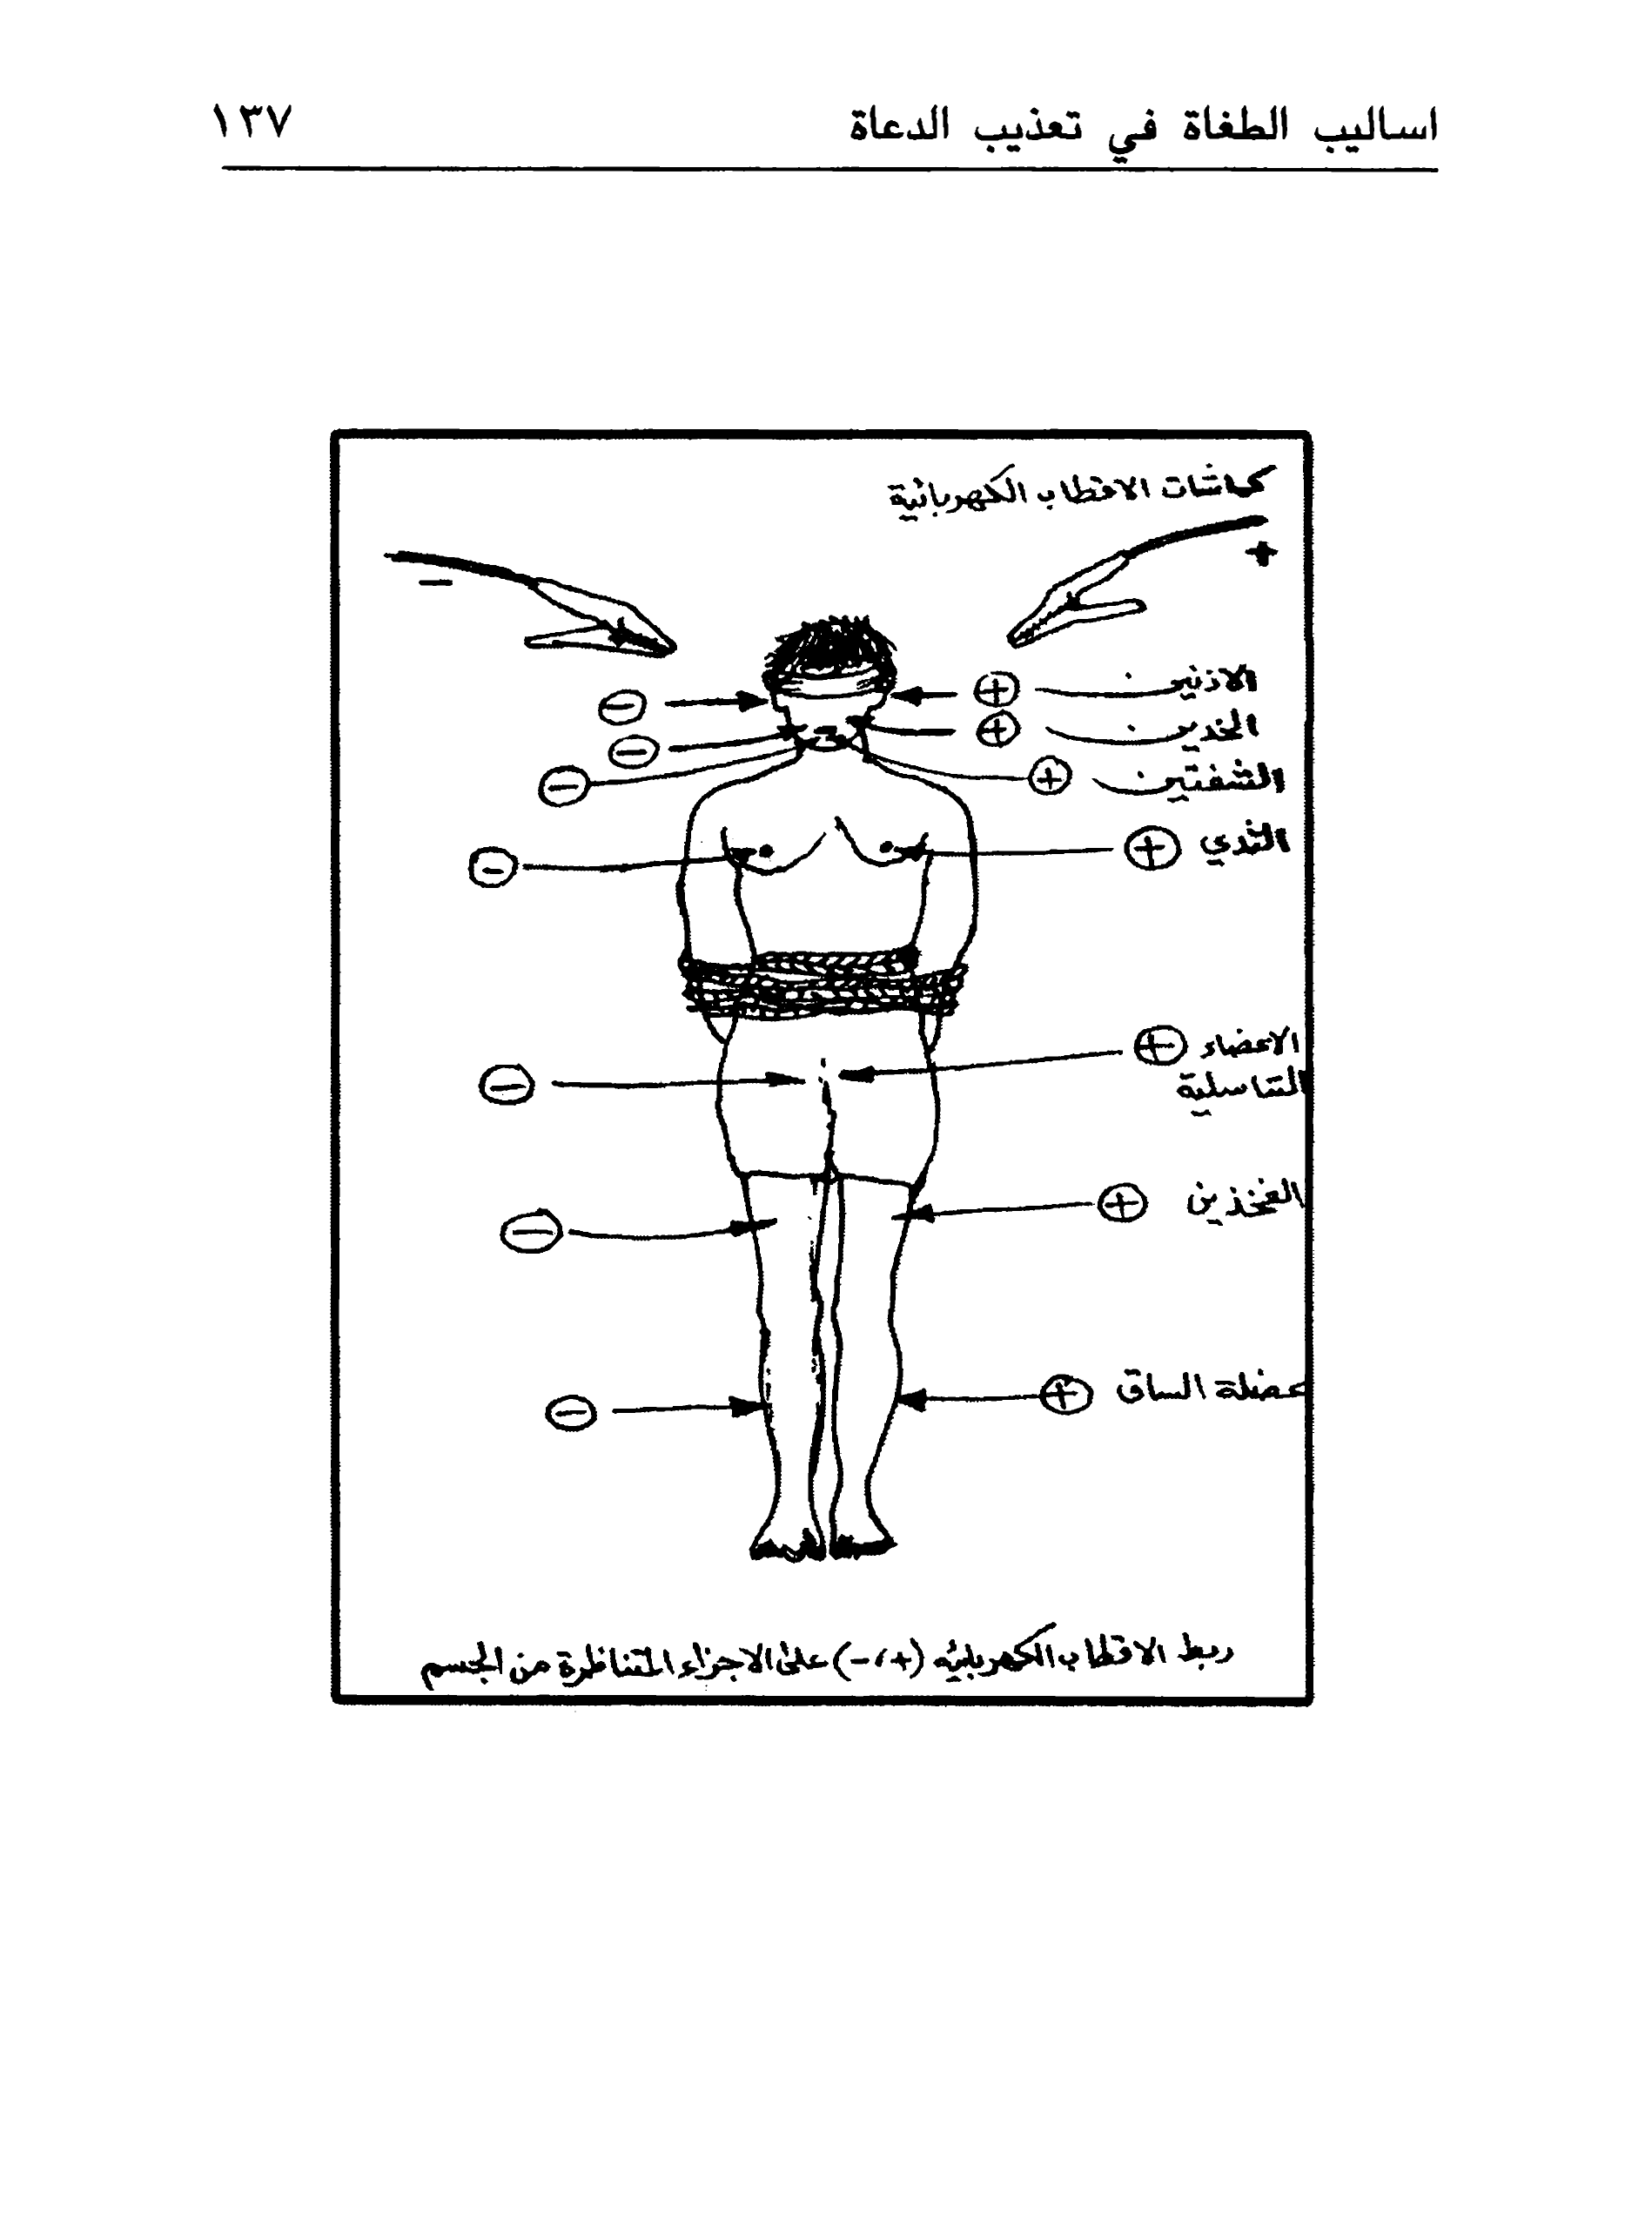 اساليب الطغاة في تعذيب الدعاة ١٣٧
كماشات الاقطاب الكهربائية
- +
- + الاذنين
- + الخدين
- + الشفتين
- + الثدي
- + الاعضاء
التناسلية
- + الفخذين
- + عضلة الساق
ربط الاقطاب الكهربائيه (+،-) على الاجزاء المتناظرة من الجسم